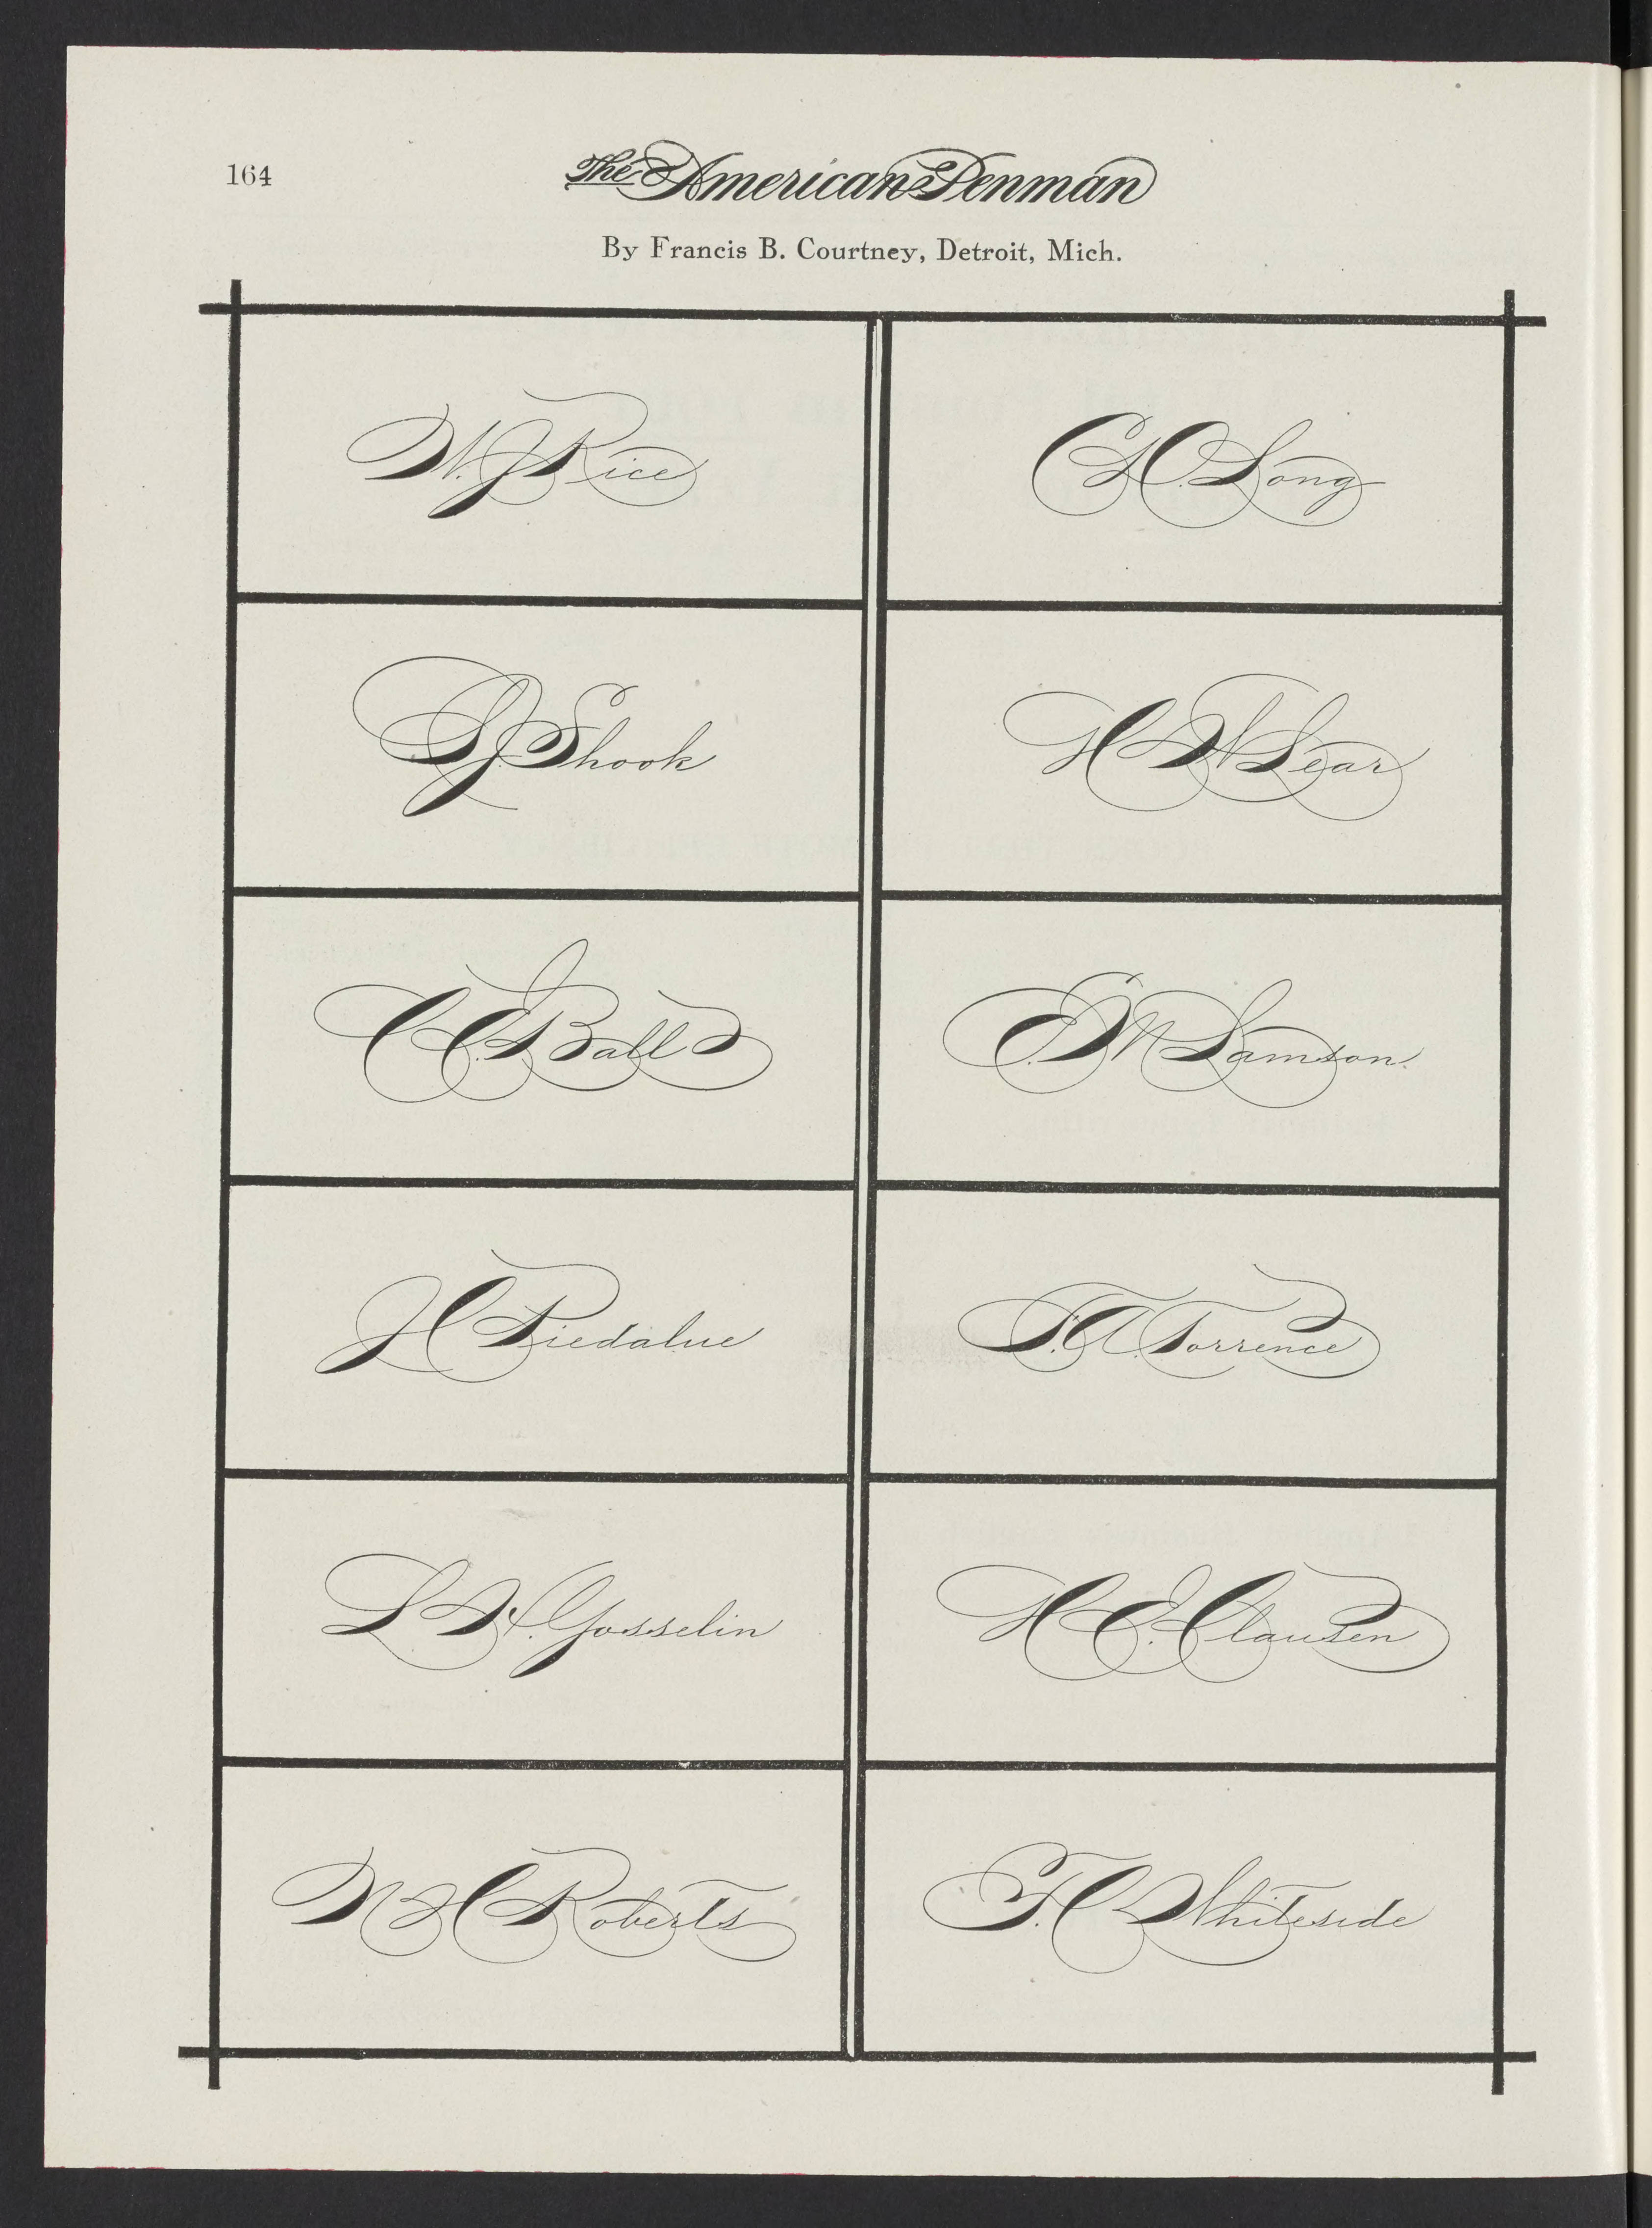 164
The American Penman
By Francis B. Courtney, Detroit, Mich.
W. J. Rice
G. O. Long
S. J. Shook
H. W. Lear
C. E. Ball
E. W. Samson.
J. C. Piedalue
F. A. Torrence
L. N. Gosselin
H. E. Clausen
N. H. Roberts
F. C. Whiteside